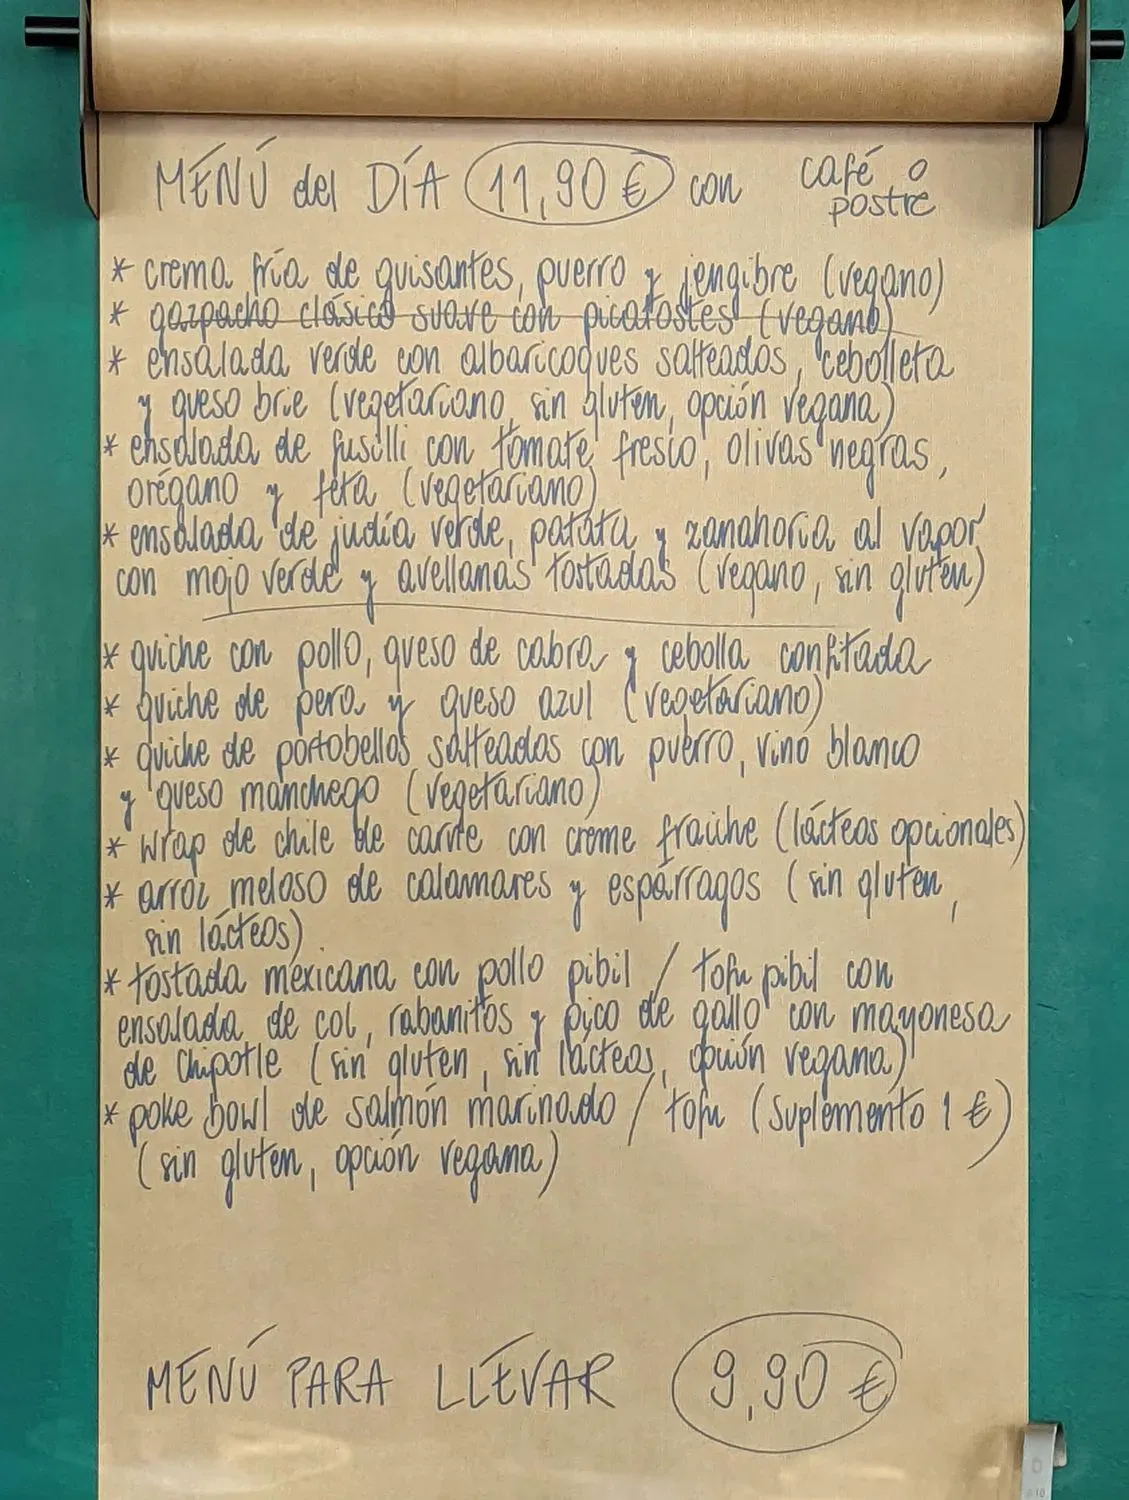 MENÚ del DÍA 11,90 € con café o postre
* crema fría de guisantes, puerro y jengibre (vegano)
* gazpacho clásico suave con picatostes (vegano)
* ensalada verde con albaricoques salteados, cebolleta
y queso brie (vegetariano, sin gluten, opción vegana)
* ensalada de fusilli con tomate fresco, olivas negras,
orégano y feta (vegetariano)
* ensalada de judía verde, patata y zanahoria al vapor
con mojo verde y avellanas tostadas (vegano, sin gluten)
* quiche con pollo, queso de cabra y cebolla confitada
* quiche de pera y queso azul (vegetariano)
* quiche de portobellos salteados con puerro, vino blanco
y queso manchego (vegetariano)
* wrap de chile de carne con crème fraîche (lácteos opcionales)
* arroz meloso de calamares y espárragos (sin gluten,
sin lácteos)
* tostada mexicana con pollo pibil / tofu pibil con
ensalada de col, rabanitos y pico de gallo con mayonesa
de chipotle (sin gluten, sin lácteos, opción vegana)
* poke bowl de salmón marinado / tofu (suplemento 1 €)
(sin gluten, opción vegana)
MENÚ PARA LLEVAR 9,90 €